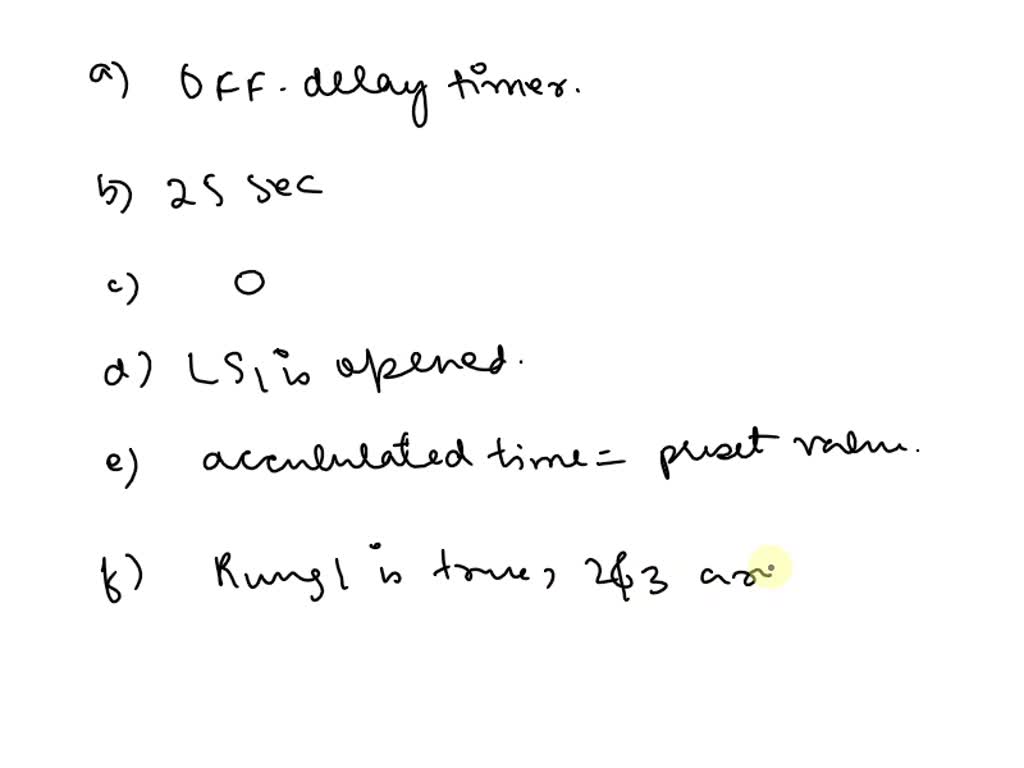 a) OFF. delay timer.
b) 25 sec
c) 0
d) LS1 is opened.
e) accululated time = preset value.
f) Rung 1 is true, 2&3 are